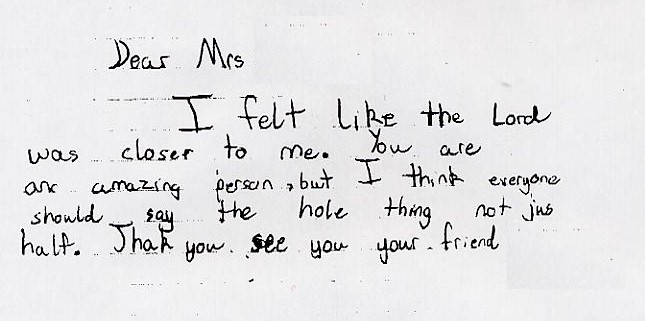 Dear Mrs
I felt like the Lord
was closer to me. You are
an amazing person, but I think everyone
should say the hole thing not jus
half. Thak you. see you your friend